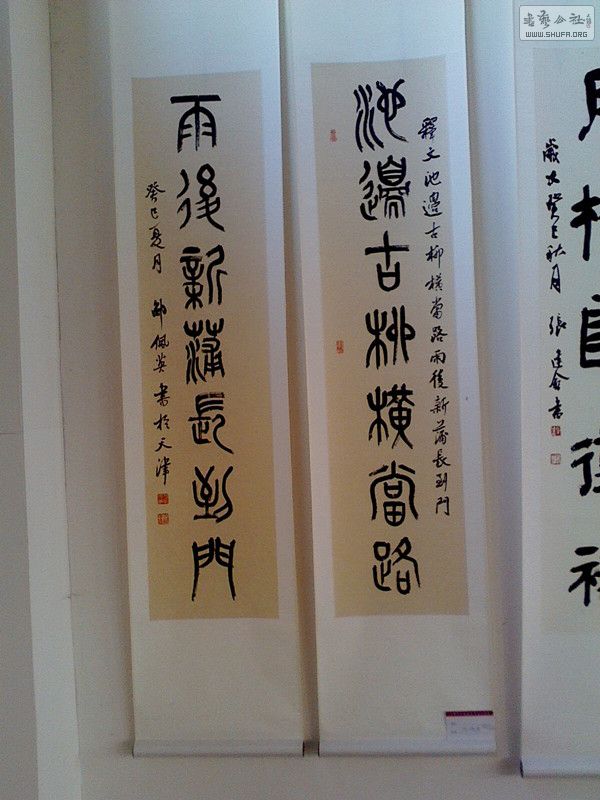 池邊古柳橫當路
釋文池邊古柳橫當路雨後新蒲長到門
雨後新蒲長到門
癸巳夏月
佩英書於天津
歲次癸巳秋月
書藝公社
WWW.SHUFA.ORG